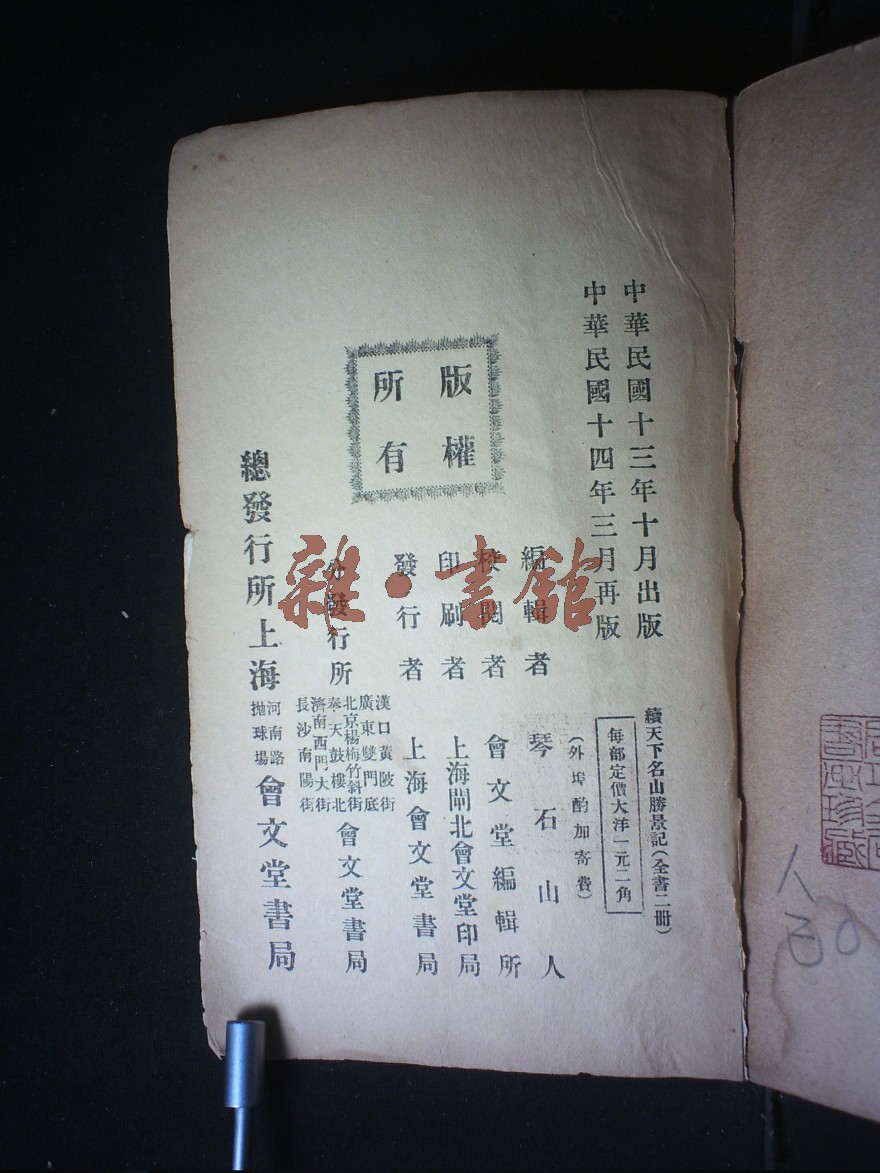 中華民國十三年十月出版
中華民國十四年三月再版
續天下名山勝景記(全書二册)
每部定價大洋一元二角
(外埠酌加寄費)
版權
所有
編輯者 琴石山人
校閱者 會文堂編輯所
印刷者 上海閘北會文堂印局
發行者 上海會文堂書局
分發行所
漢口黃陂街
廣東雙門底
北京楊梅竹斜街
奉天鼓樓北
濟南西門大街
長沙南陽街
會文堂書局
總發行所上海
河南路
拋球場
會文堂書局
雜·書館